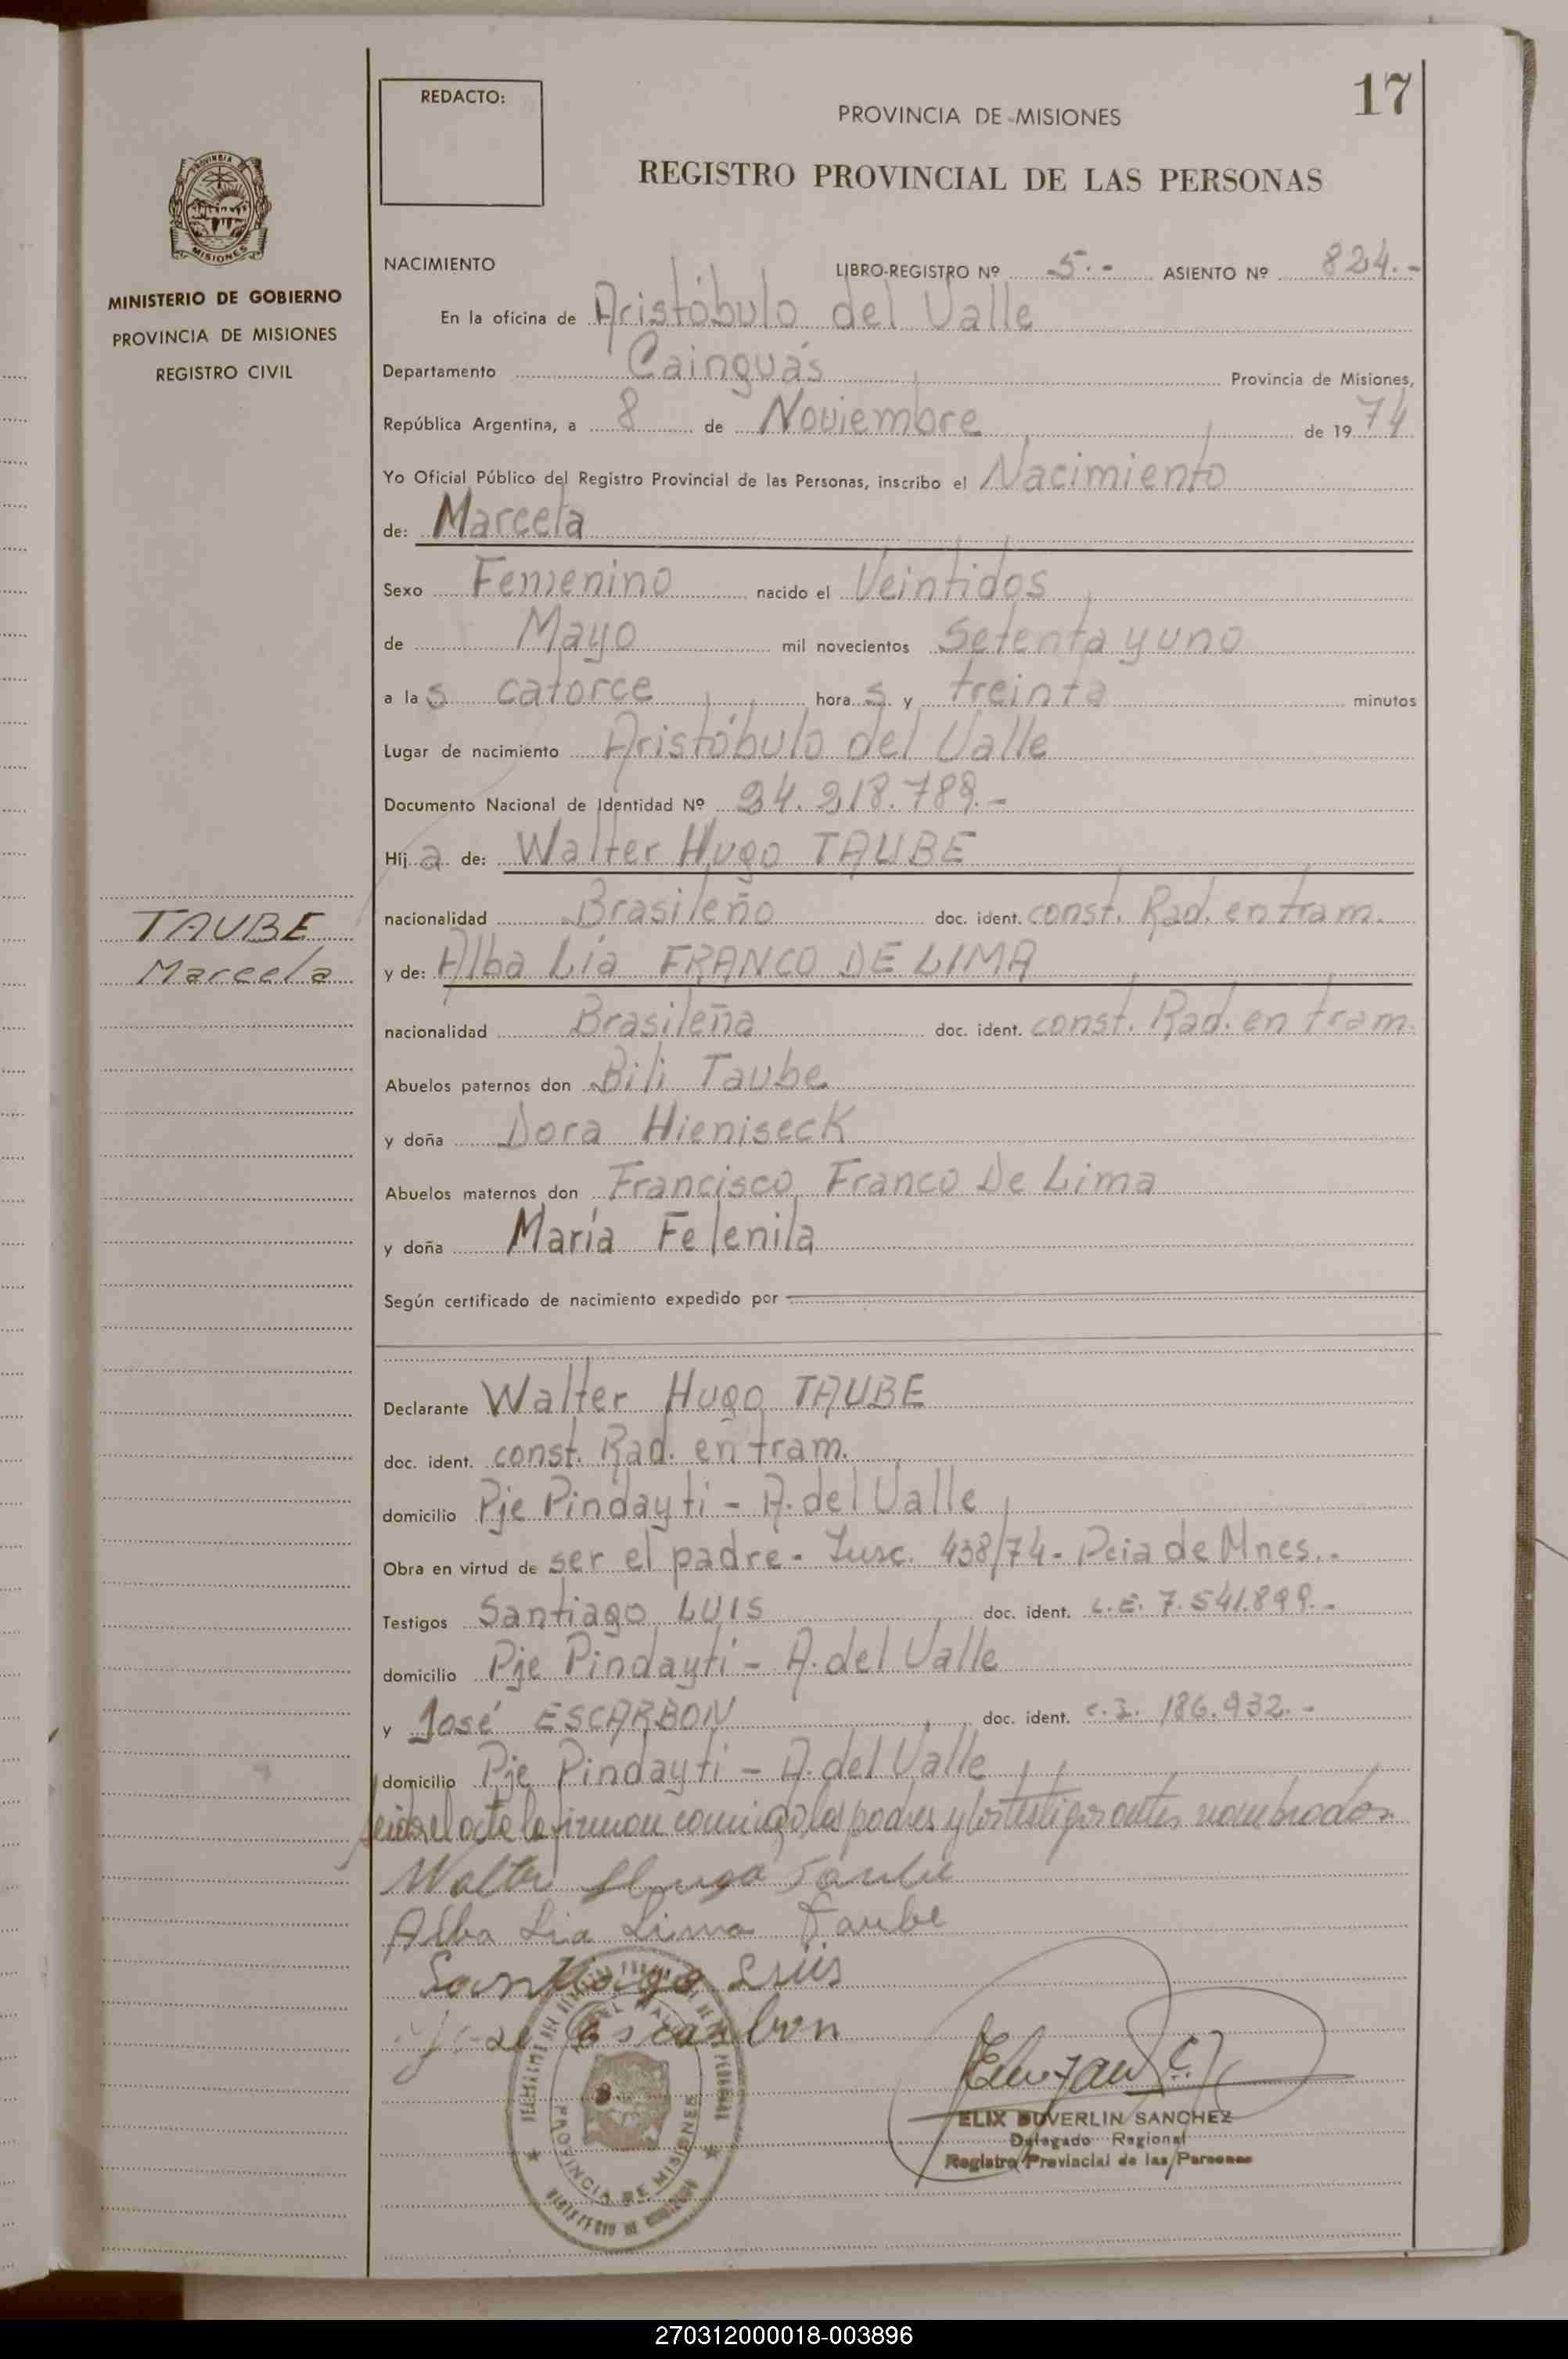 17
REDACTO:
PROVINCIA DE MISIONES
REGISTRO PROVINCIAL DE LAS PERSONAS
PROVINCIA
MISIONES
MINISTERIO DE GOBIERNO
PROVINCIA DE MISIONES
REGISTRO CIVIL
NACIMIENTO LIBRO-REGISTRO Nº 5.- ASIENTO Nº 824.-
En la oficina de Aristóbulo del Valle
Departamento Cainguás Provincia de Misiones,
República Argentina, a 8 de Noviembre de 1974
Yo Oficial Público del Registro Provincial de las Personas, inscribo el Nacimiento
de: Marcela
Sexo Femenino nacido el Veintidos
de Mayo mil novecientos setenta y uno
a las catorce horas y treinta minutos
Lugar de nacimiento Aristóbulo del Valle
Documento Nacional de Identidad Nº 24.218.789.-
Hija de: Walter Hugo TAUBE
nacionalidad Brasileño doc. ident. const. Rad. en tram.
TAUBE
Marcela
y de: Alba Lía FRANCO DE LIMA
nacionalidad Brasileña doc. ident. const. Rad. en tram.
Abuelos paternos don Bili Taube
y doña Dora Hieniseck
Abuelos maternos don Francisco Franco De Lima
y doña María Felenila
Según certificado de nacimiento expedido por
Declarante Walter Hugo TAUBE
doc. ident. const. Rad. en tram.
domicilio Pje Pindayti - A. del Valle
Obra en virtud de ser el padre - Insc. 438/74 - Pcia de Mnes.-
Testigos Santiago LUIS doc. ident. L.E. 7.541.899.-
domicilio Pje Pindayti - A. del Valle
y José ESCARBON doc. ident. c.I. 186.932.-
domicilio Pje Pindayti - A. del Valle
leida el acta la firman conmigo los padres y los testigos antes nombrados.
Walter Hugo Taube
Alba Lia Lima Taube
Santiago Luis
Jose Escarbon
PROVINCIA DE MISIONES
ELIX DUVERLIN SANCHEZ
Delegado Regional
Registro Provincial de las Personas
270312000018-003896